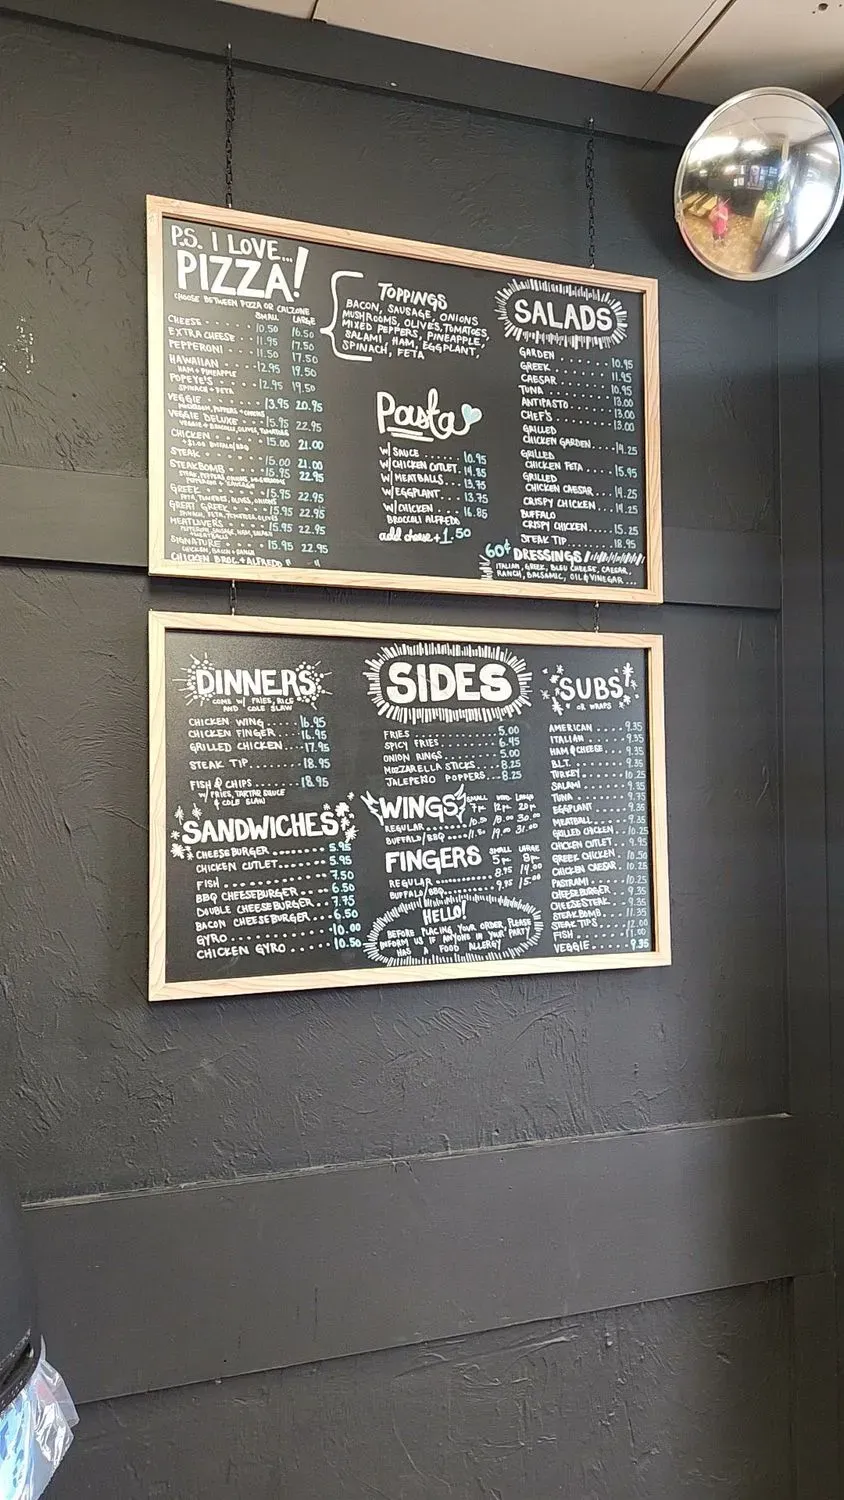 P.S. I LOVE...
PIZZA!
CHOOSE BETWEEN PIZZA OR CALZONE
SMALL LARGE
CHEESE 10.50 16.50
EXTRA CHEESE 11.50 17.50
PEPPERONI 11.50 17.50
HAWAIIAN 12.95 19.50
HAM + PINEAPPLE
POPEYE'S 12.95 19.50
SPINACH + FETA
VEGGIE 13.95 20.95
MUSHROOM, PEPPERS + ONIONS
VEGGIE DELUXE 15.95 22.95
VEGGIE + BROCCOLI, OLIVES, TOMATOES
CHICKEN 15.00 21.00
+$1.00 BUFFALO/BBQ
STEAK 15.00 21.00
STEAKBOMB 15.95 22.95
STEAK, PEPPERS, ONIONS, MUSHROOMS
PEPPERONI + SAUSAGE
GREEK 15.95 22.95
FETA, TOMATOES, OLIVES, ONIONS
GREAT GREEK 15.95 22.95
SPINACH, FETA, TOMATOES, OLIVES
MEATLOVERS 15.95 22.95
PEPPERONI, SAUSAGE, HAM, SALAMI
MEATBALLS
SIGNATURE 15.95 22.95
CHICKEN, BACON + RANCH
CHICKEN BROC. + ALFREDO " "
TOPPINGS
BACON, SAUSAGE, ONIONS
MUSHROOMS, OLIVES, TOMATOES,
MIXED PEPPERS, PINEAPPLE,
SALAMI, HAM, EGGPLANT,
SPINACH, FETA
Pasta
W/ SAUCE 10.95
W/ CHICKEN CUTLET 14.85
W/ MEATBALLS 13.75
W/ EGGPLANT 13.75
W/ CHICKEN 16.85
BROCCOLI ALFREDO
add cheese + 1.50
SALADS
GARDEN 10.95
GREEK 11.95
CAESAR 10.95
TUNA 13.00
ANTIPASTO 13.00
CHEF'S 13.00
GRILLED
CHICKEN GARDEN 14.25
GRILLED
CHICKEN FETA 15.95
GRILLED
CHICKEN CAESAR 14.25
CRISPY CHICKEN 14.25
BUFFALO
CRISPY CHICKEN 15.25
STEAK TIP 18.95
60¢ DRESSINGS!
ITALIAN, GREEK, BLEU CHEESE, CAESAR,
RANCH, BALSAMIC, OIL & VINEGAR...
DINNERS
COME W/ FRIES, RICE
AND COLE SLAW
CHICKEN WING 16.95
CHICKEN FINGER 16.95
GRILLED CHICKEN 17.95
STEAK TIP 18.95
FISH & CHIPS 18.95
W/ FRIES, TARTAR SAUCE
& COLE SLAW
SANDWICHES
CHEESEBURGER 5.95
CHICKEN CUTLET 5.95
FISH 7.50
BBQ CHEESEBURGER 6.50
DOUBLE CHEESEBURGER 7.75
BACON CHEESEBURGER 6.50
GYRO 10.00
CHICKEN GYRO 10.50
SIDES
FRIES 5.00
SPICY FRIES 6.45
ONION RINGS 5.00
MOZZARELLA STICKS 8.25
JALEPEÑO POPPERS 8.25
WINGS SMALL MED LARGE
7 pc 12 pc 20 pc
REGULAR 10.50 18.00 30.00
BUFFALO/BBQ 11.50 19.00 31.00
FINGERS SMALL LARGE
5 pc 8 pc
REGULAR 8.95 14.00
BUFFALO/BBQ 9.95 15.00
HELLO!
BEFORE PLACING YOUR ORDER, PLEASE
INFORM US IF ANYONE IN YOUR PARTY
HAS A FOOD ALLERGY
SUBS!
OR WRAPS
AMERICAN 9.35
ITALIAN 9.35
HAM & CHEESE 9.35
B.L.T. 9.35
TURKEY 10.25
SALAMI 9.35
TUNA 9.75
EGGPLANT 9.35
MEATBALL 9.35
GRILLED CHICKEN 10.25
CHICKEN CUTLET 9.95
GREEK CHICKEN 10.50
CHICKEN CAESAR 10.25
PASTRAMI 10.25
CHEESEBURGER 9.35
CHEESESTEAK 9.35
STEAKBOMB 11.35
STEAK TIPS 12.00
FISH 11.00
VEGGIE 9.35